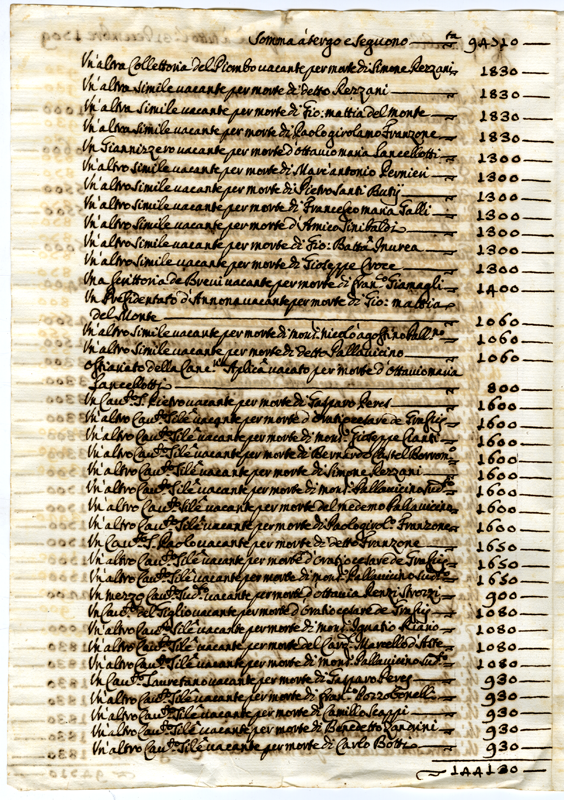 Somma à tergo e seguono — 94510
Un'altra Collettoria del Piombo vacante per morte di Simone Rezzani 1830
Un'altra simile vacante per morte di detto Rezzani 1830
Un'altra simile vacante per morte di Gio: mattia del monte 1830
Un'altra simile vacante per morte di Paolo girolamo Franzone 1830
Un Giannizzero vacante per morte d'ottavio maria Lancellotti 1300
Un'altro simile vacante per morte di Marc'antonio Vernieri 1300
Un'altro simile vacante per morte di Pietro Santi Butij 1300
Un'altro simile vacante per morte di Francesco maria Galli 1300
Un'altro simile vacante per morte d'Amico Sinibaldi 1300
Un'altro simile vacante per morte di Gio: Batta Inurea 1300
Un'altro simile vacante per morte di Gioseppe Croce 1300
Una Scrittoria de Brevi vacante per morte di Fran.co Giamagli 1400
Un Presidentato d'Annona vacante per morte di Gio: mattia
del Monte 1060
Un'altro simile vacante per morte di mons. nicolò agostino Pall.no 1060
Un'altro simile vacante per morte di detto Pallavicino 1060
Ostiariato della Canc. Aplica vacato per morte d'ottavio maria
Lancellotti 800
Un Cau.to S. Pietro vacante per morte di Gasparo Peres 1600
Un'altro Cau.to Sile vacante per morte d'oratio cesare de 1600
Un'altro Cau.to Sile vacante per morte di mons. Gioseppe Cianti 1600
Un'altro Cau.to Sile vacante per morte di Bernardo Castel Borromo 1600
Un'altro Cau.to Sile vacante per morte di Simone Rezzani 1600
Un'altro Cau.to Sile vacante per morte di mons. Pallavicino Sud.to 1600
Un'altro Cau.to Sile vacante per morte del medemo Pallavicino 1600
Un'altro Cau.to Sile vacante per morte di Paolo girol.o Franzone 1600
Un Cau.to S. Paolo vacante per morte di detto Franzone 1650
Un'altro Cau.to Sile vacante per morte d'oratio cesare de 1650
Un'altro Cau.to Sile vacante per morte di mons. Pallavicino Sud.to 1650
Un mezzo Cau.to Sud.o vacante per morte d'ottavia Renzi Strozzi 900
Un Cau.to del Giglio vacante per morte d'oratio cesare de 1080
Un'altro Cau.to Sile vacante per morte di mons. Ignatio Riano 1080
Un'altro Cau.to Sile vacante per morte del Card. Marcello d'Aste 1080
Un'altro Cau.to Sile vacante per morte di mons. Pallavicino Sud.to 1080
Un Cau.to Lauretano vacante per morte di Gasparo Peres 930
Un'altro Cau.to Sile vacante per morte di Fran.co Pozzobonelli 930
Un'altro Cau.to Sile vacante per morte di Camillo Scappi 930
Un'altro Cau.to Sile vacante per morte di Benedetto Zandini 930
Un'altro Cau.to Sile vacante per morte di Carlo Botti 930
144130